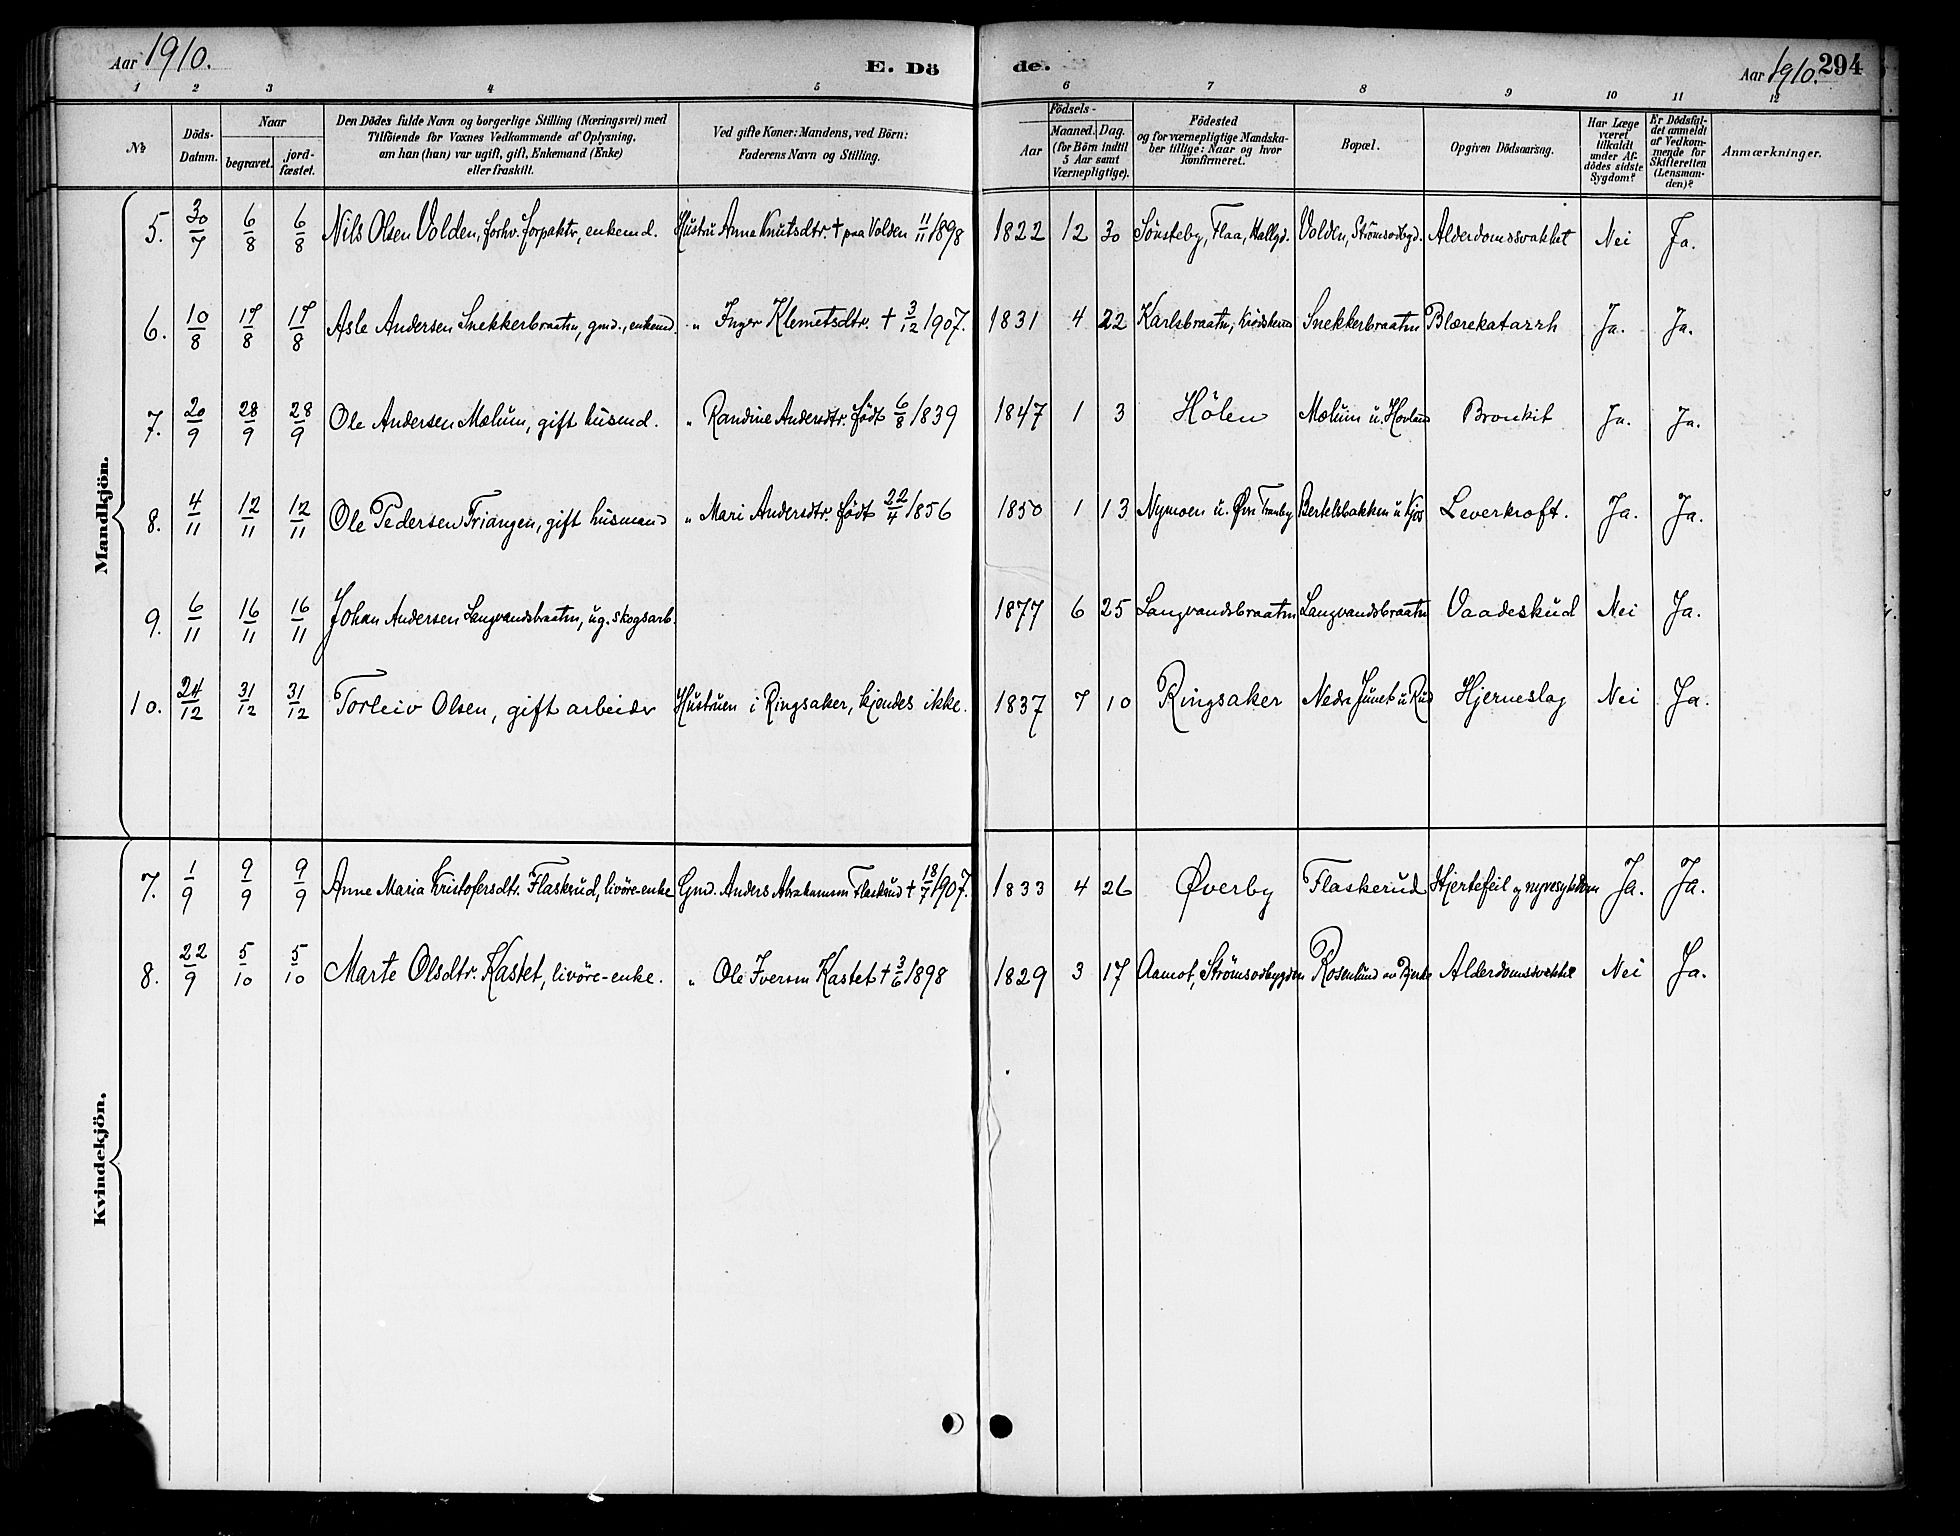 Aar 1910.
E. Dö
de.
Aar 1910. 294
1 2 3 4 5 6 7 8 9 10 11 12
№
Döds-
Datum.
Naar
begravet.
jord-
fæstet.
Den Dödes fulde Navn og borgerlige Stilling (Næringsvei) med
Tilföiende for Voxnes Vedkommende af Oplysning,
om han (hun) var ugift, gift, Enkemand (Enke)
eller fraskilt.
Ved gifte Koner: Mandens, ved Börn:
Faderens Navn og Stilling.
Födsels-
Aar
Maaned. Dag.
(for Börn indtil
5 Aar samt
Værnepligtige).
Födested
og for værnepligtige Mandska-
ber tillige: Naar og hvor
Konfirmeret.
Bopæl.
Opgiven Dödsaarsag.
Har Læge
været
tilkaldt
under Af-
dödes sidste
Sygdom?
Er Dödsfal-
det anmeldt
af Vedkom-
mende for
Skifteretten
(Lensman-
den)?
Anmærkninger.
Mandkjön.
5. 30/7 6/8 6/8 Nils Olsen Volden, forhv. forpaktr, enkemd. Hustru Anne Knutsdtr. † paa Volden 11/11 1898 1822 12 30 Sønsteby, Flaa, Hallgd. Volden, Strömsodbygd. Alderdomssvakhet Nei Ja.
6. 10/8 17/8 17/8 Asle Andersen Snekkerbraatn, gmd., enkemd. „ Inger Klemetsdtr. † 3/12 1907. 1831 4 22 Karlsbraatn, Krødsherad Snekkerbraatn Blærekatarrh Ja. Ja.
7. 20/9 28/9 28/9 Ole Andersen Mælum, gift husmd. „ Randine Andersdtr. født 6/8 1839 1847 1 3 Hølen Mælum u. Hovland Bronkit Ja. Ja.
8. 4/11 12/11 12/11 Ole Pedersen Triangen, gift husmand „ Mari Andersdtr. født 22/4 1856 1850 1 13 Nymoen u. Øvre Tranby Bertelsbakken u Kjøs Leverkræft. Ja. Ja.
9. 6/11 16/11 16/11 Johan Andersen Langvandsbraatn, ug. skogsarb. 1877 6 25 Langvandsbraatn Langvandsbraatn Vaadeskud Nei Ja.
10. 24/12 31/12 31/12 Torleiv Olsen, gift arbeider Hustruen i Ringsaker, kjendes ikke. 1837 7 10 Ringsaker Nedre Juvet u Rud Hjerneslag Nei Ja.
Kvindekjön.
7. 1/9 9/9 9/9 Anne Maria Kristofersdtr. Flaskerud, livöre-enke Gmd. Anders Abrahamsen Flaskerud † 18/7 1907. 1833 4 26 Øverby Flaskerud Hjertefeil og nyresykdom Ja. Ja.
8. 22/9 5/10 5/10 Marte Olsdtr. Kastet, livöre-enke. „ Ole Iversen Kastet † 3/6 1898 1829 3 17 Aamot, Strömsodbygden Rosenlund av Bjerke Alderdomssvakhet Nei Ja.